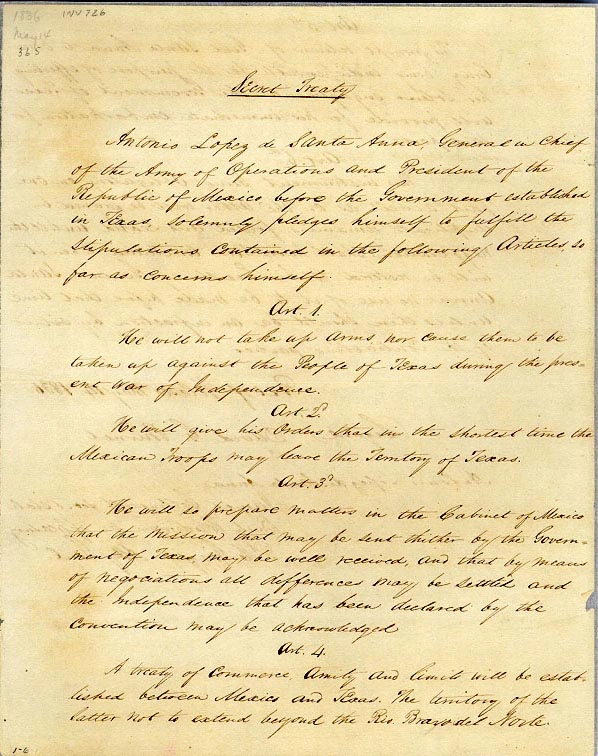 1836
INV 726
May 14
365
Secret Treaty
Antonio Lopez de Santa Anna, General in Chief
of the Army of Operations and President of the
Republic of Mexico, before the Government established
in Texas, solemnly pledges himself to fulfill the
Stipulations contained in the following Articles, so
far as concerns himself.
Art. 1.
He will not take up Arms, nor cause them to be
taken up against the People of Texas during the pres-
ent War of Independence.
Art. 2d.
He will give his Orders that in the shortest time the
Mexican Troops may leave the Territory of Texas.
Art. 3d.
He will so prepare matters in the Cabinet of Mexico
that the Mission that may be sent thither by the Govern-
ment of Texas may be well received, and that by means
of negociations all differences may be settled and
the Independence that has been declared by the
Convention may be acknowledged
Art. 4.
A treaty of Commerce, Amity and limits will be estab-
lished between Mexico and Texas. The territory of the
latter not to extend beyond the Rio Bravo del Norte.
1-6